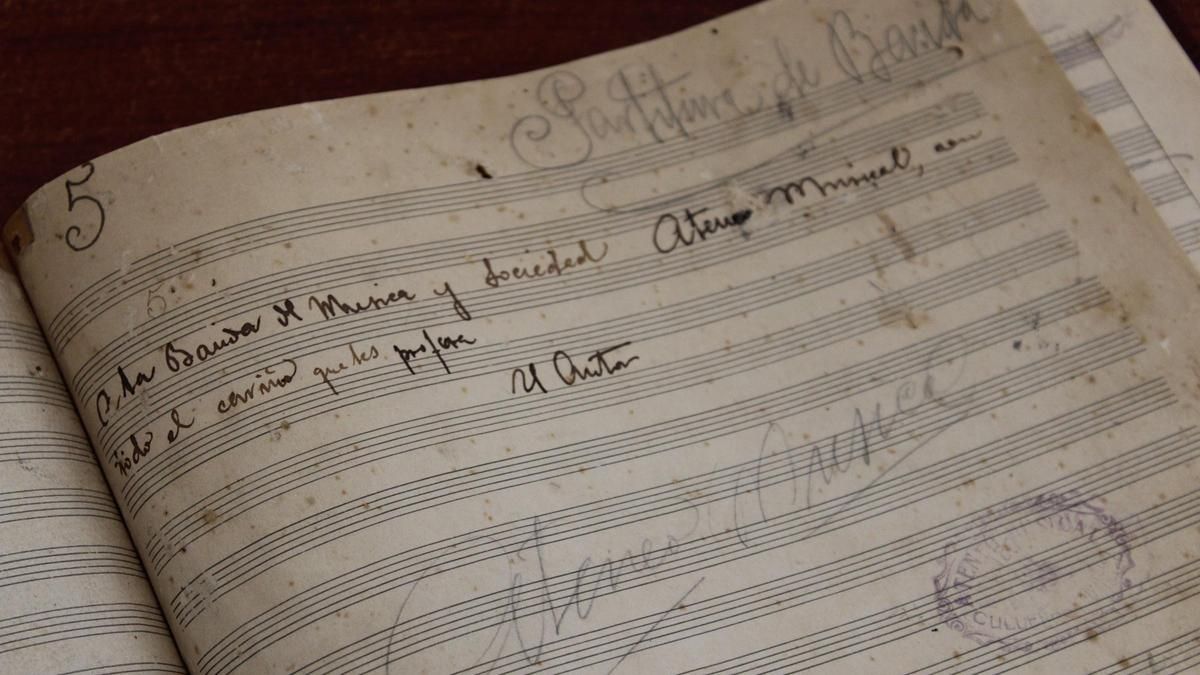 Partitura de Banda
5
A la Banda de Musica y Sociedad Ateneo Musical, con
todo el cariño que les profesa
El Autor
Ateneo Musical
CULLERA